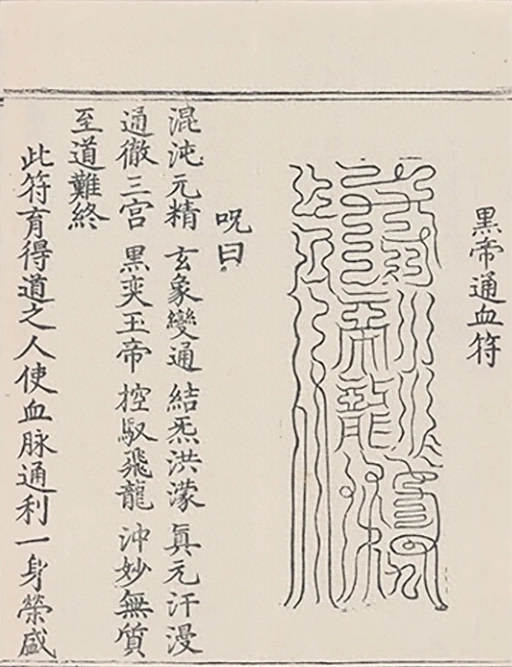 黑帝通血符
呪曰
混沌元精 玄象變通 結炁洪濛 眞元汗漫
通徹三宮 黑奕玉帝 控馭飛龍 沖妙無質
至道難終
此符育得道之人使血脉通利一身榮盛